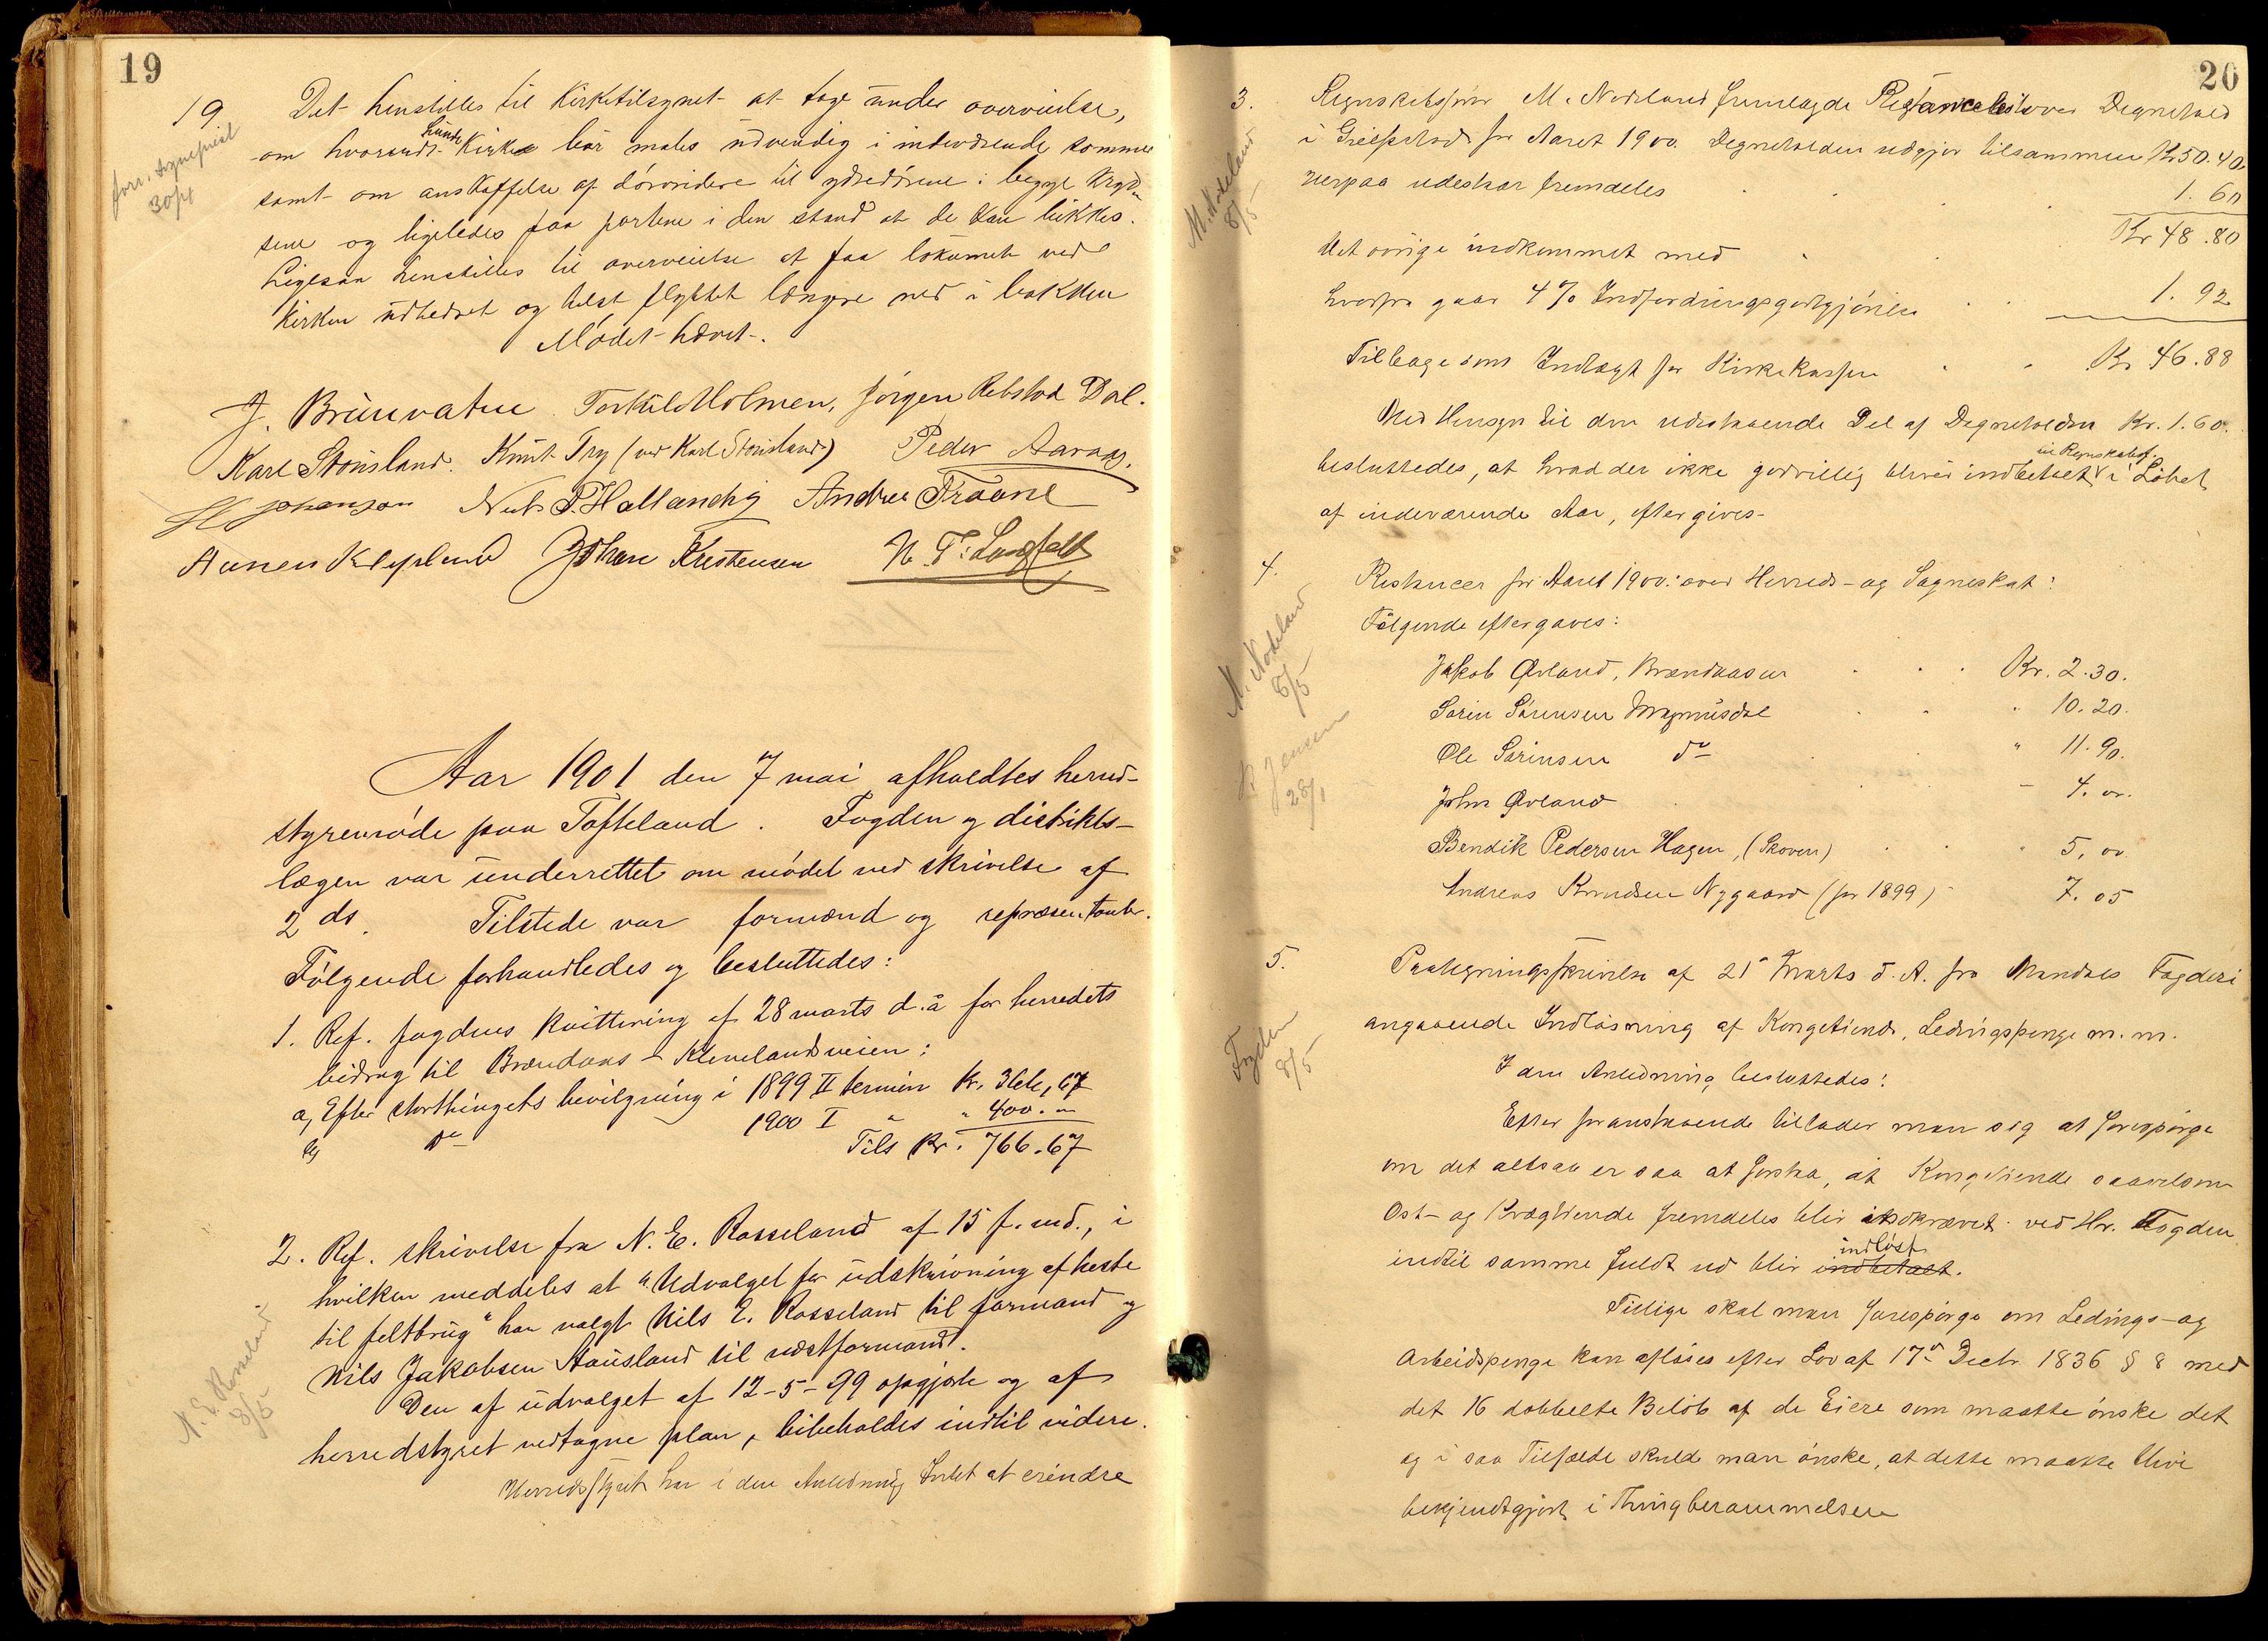 19
19 Det henstilles til Kirketilsynet at tage under overveielse,
om hvorvidt Lunde Kirke bør males udvendig i indeværende sommer
samt om anskaffelse af dørvridere til ydredørene i begge Kryds-
sene og ligeledes faa portene i den stand at de kan lukkes.
Ligesaa henstilles til overveielse at faa lokumet ved
Kirken udbedret og helst flyttet længere ned i bakken
Mødet hævet.
forr. sogneprest
30/4
J. Brunvatne Torkild Holmen, Jørgen Rebstad Dal.
Karl Stousland. Knut Try (ved Karl Stousland) Peder Aaraas.
H Johanson P. Hallandvig Andreas Fraane
Klepland Johan Kristensen N. T. Langfeldt
Aar 1901 den 7 mai afholdtes herred-
styremøde paa Tofteland. Fogden og distrikts-
lægen var underrettet om mødet ved skrivelse af
2 ds. Tilstede var formænd og repræsentanter.
Følgende forhandledes og besluttedes:
1. Ref. fogdens kvittering af 28 marts d.å for herredets
bidrag til Brændaas - Klevelandsveien:
a, Efter storthingets bevilgning i 1899 II termin Kr. 366,67
b, do 1900 I " " 400.00
Tils Kr. 766.67
2. Ref. skrivelse fra N. E. Rosseland af 15 f. md., i
hvilken meddeles at "Udvalget for udskrivning af heste
til feltbrug" har valgt Nils E. Rosseland til formand og
Nils Jakobsen Stausland til næstformand.
Den af udvalget af 12-5-99 opgjorte og af
herredstyret vedtagne plan, bibeholdes indtil videre.
Herredsstyret har i den Anledning Intet at erindre
N. E. Rosseland
8/5
20
3. Regnskabsfører M. Nodeland fremlagde Restanceliste over Degnetold
i Greipstad for Aaret 1900. Degnetolden udgjør tilsammen Kr 50.40,
herpaa udestaar fremdeles 1.60
Kr 48.80
Det øvrige indkommet med
hvorfra gaar 4% Indfordringsgodtgjørelse 1.92
Tilbage som Indtægt for Kirkekassen Kr 46.88
Med Hensyn til den udestaaende Del af Degnetolden Kr. 1.60.
besluttedes, at hvad der ikke godvillig bliver indbetalt til Regnskabsf. i Løbet
af indeværende Aar, eftergives.
M. Nodeland
8/5
4. Restancer for Aaret 1900: over Herreds- og Sogneskat:
Følgende eftergaves:
Jakob Øvland, Brændaasen Kr. 2.30.
Sørin Sørensen Magnusdal " 10.20.
Ole Sørinsen do " 11.90.
John Øvland - 4.00.
Bendik Pedersen Hagen, (Skoven) " 5,00
Andreas Knudsen Nygaard (for 1899) - 7.05
M. Nodeland
8/5
Jensen
28/1
5. Paategningsskrivelse af 21de Marts d. A. fra Mandals Fogderi
angaaende Indløsning af Kongetiende, Ledingspenge m. m.
I den Anledning besluttedes:
Efter foranstaaende tillader man sig at forespørge
om det altsaa er saa at forstaa, at Kongetiende saavelsom
Ost- og Kvægtiende fremdeles blir indkrævet ved Hr. Fogden
indtil samme fuldt ud blir indbetalt indløst.
Tillige skal man forespørge om Ledings- og
Arbeidspenge kan afløses efter Lov af 17de Decbr. 1836 § 8 med
det 16 dobbelte Beløb af de Eiere som maatte ønske det
og i saa Tilfælde skulde man ønske, at dette maatte blive
bekjendtgjort i Thingberammelsen
Fogden
8/5